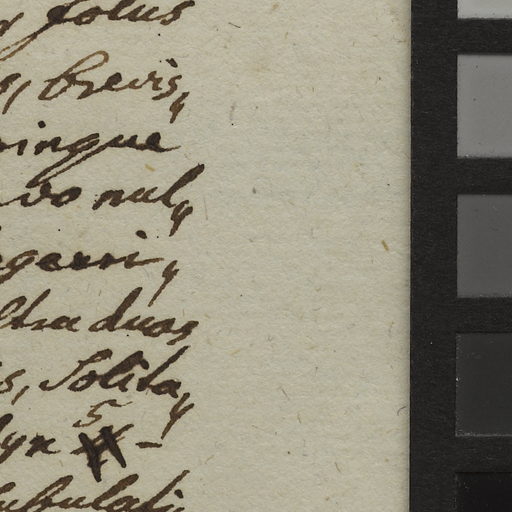 solus
brevis,
inque
vo nul„
gerri„
ltra duas
s, Solita„
lyx 5 –
subulati